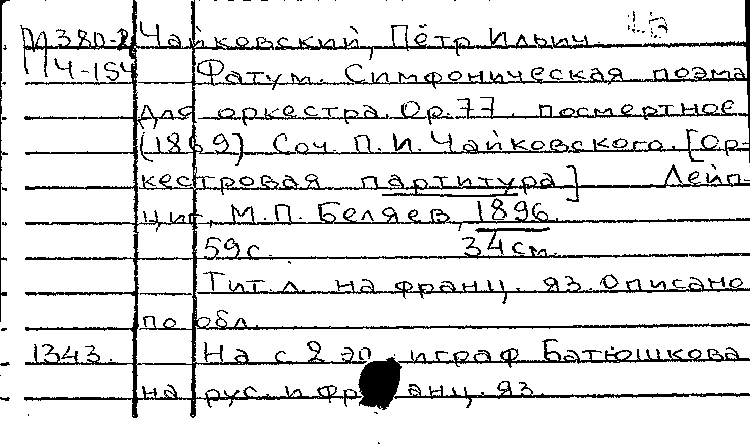 М380-2 Чайковский, Пётр Ильич
П4-154 Фатум. Симфоническая поэма
для оркестра. Op. 77. посмертное
(1869) Соч. П. И. Чайковского. [Ор-
кестровая партитура] Лейп-
циг, М. П. Беляев, 1896.
59с. 34см.
Тит. л. на франц. яз. Описано
по обл.
1343. На с 2 эпиграф Батюшкова
на рус. и франц. яз.